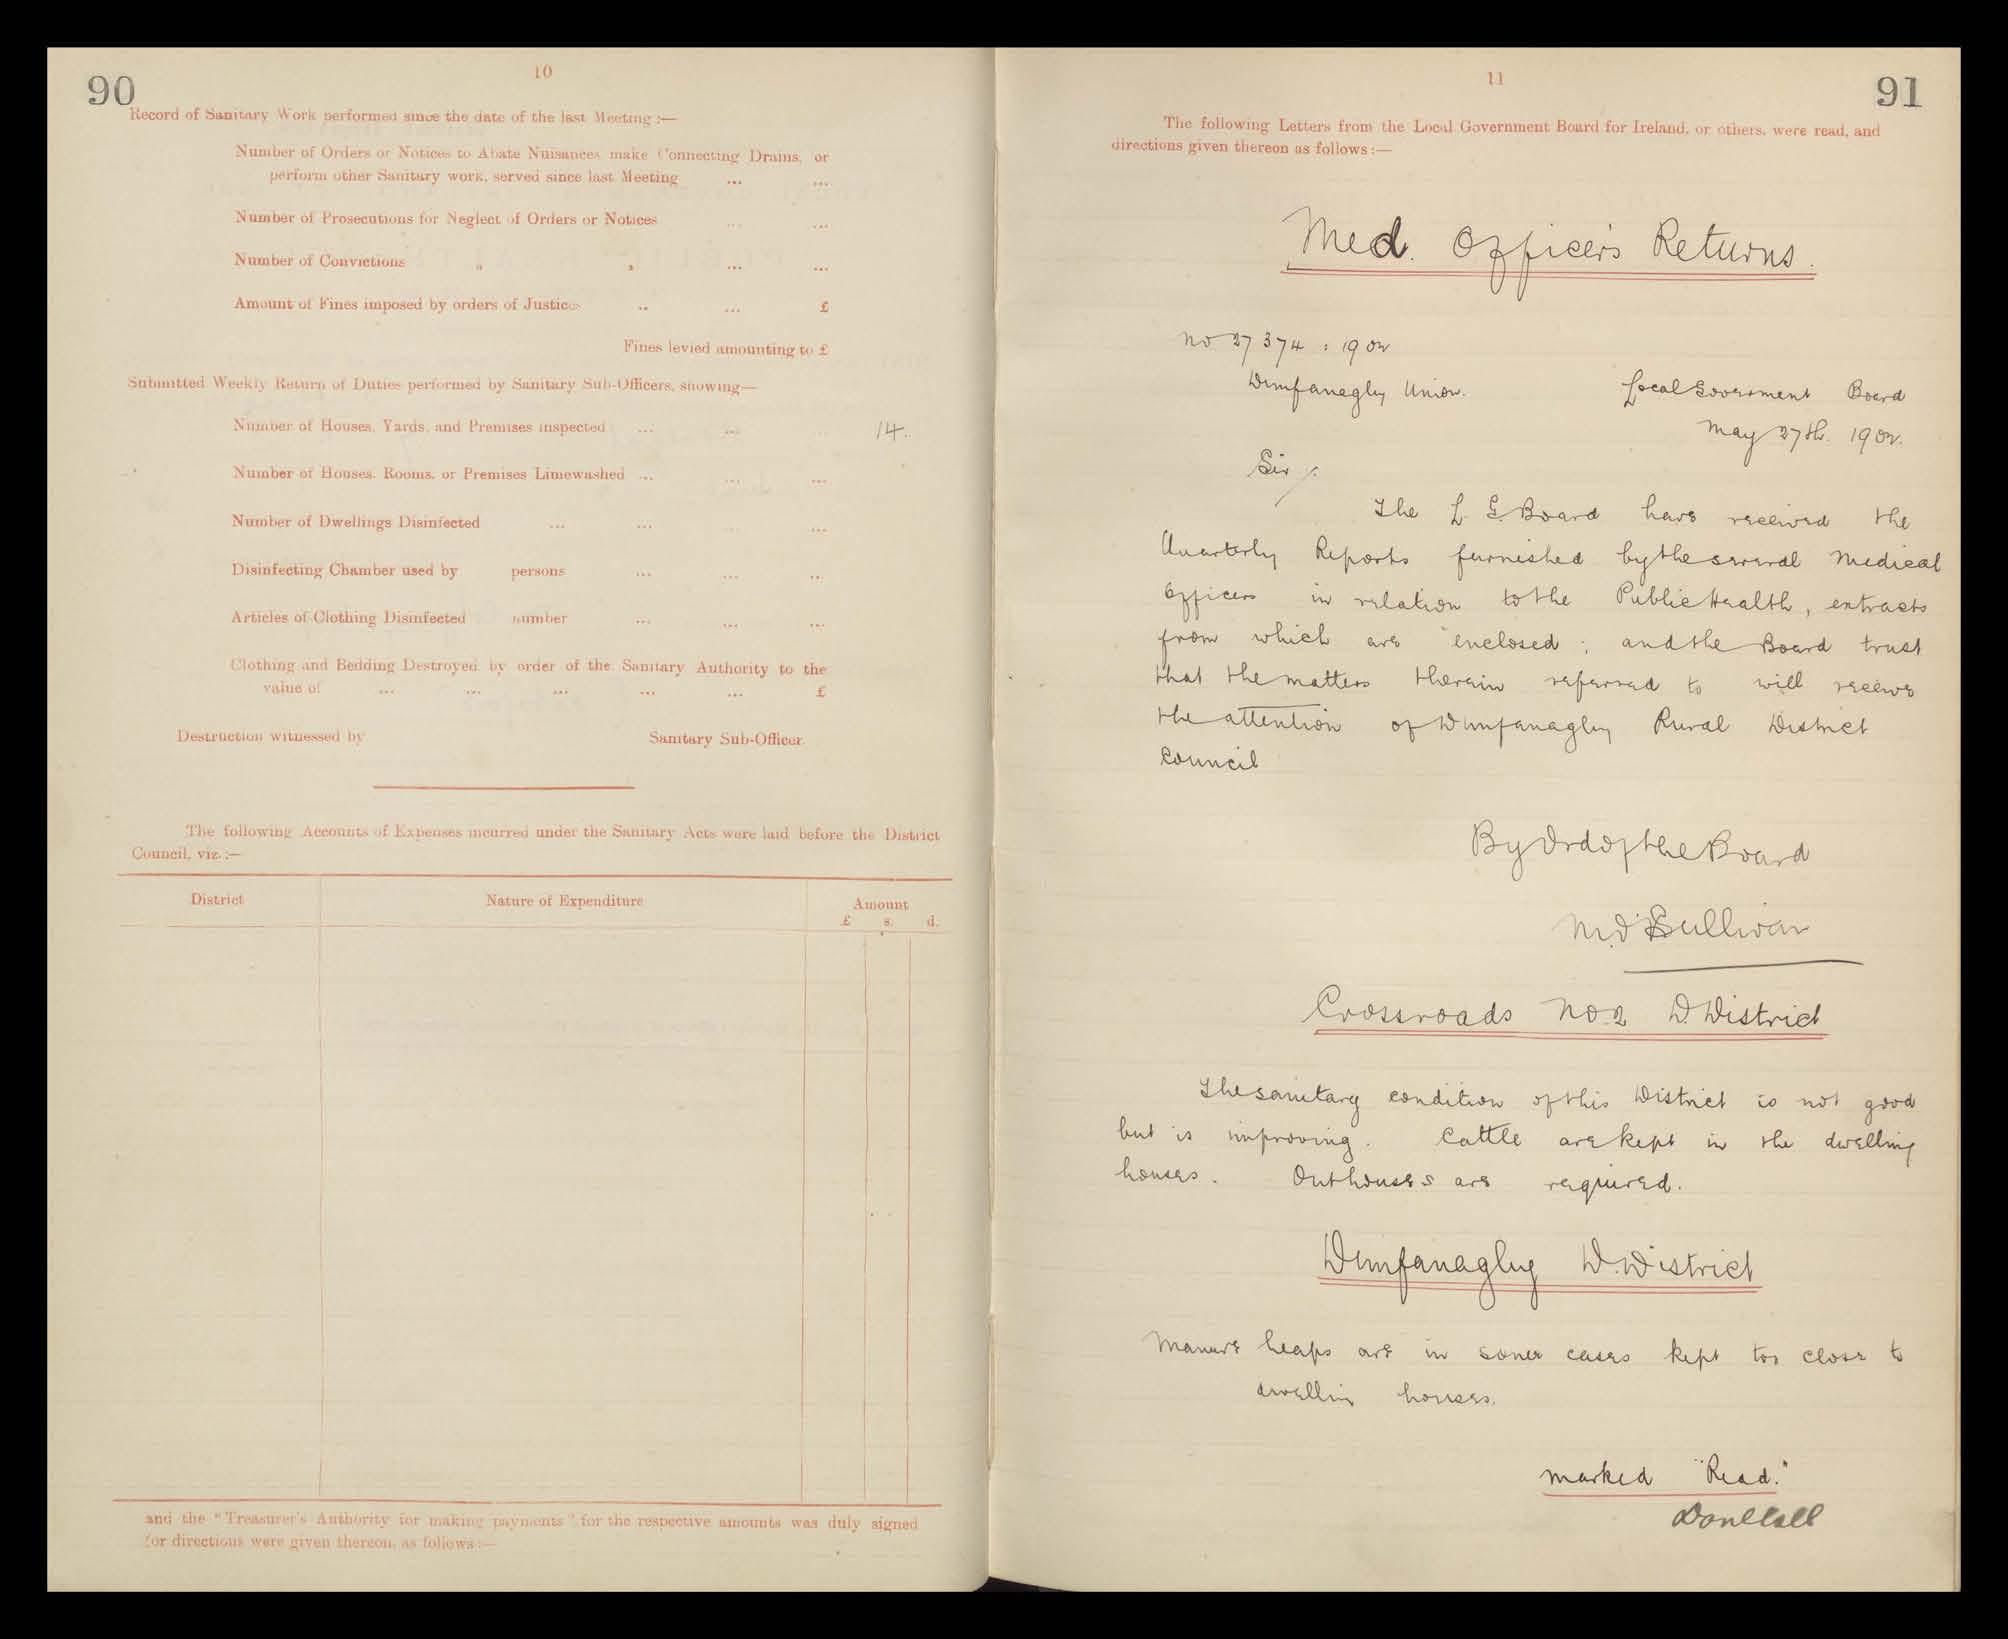 90
10
Record of Sanitary Work performed since the date of the last Meeting :—
Number of Orders or Notices to Abate Nuisances make Connecting Drains, or
perform other Sanitary work, served since last Meeting ... ...
Number of Prosecutions for Neglect of Orders or Notices ... ...
Number of Convictions „ „ ... ...
Amount of Fines imposed by orders of Justices .. ... £
Fines levied amounting to £
Submitted Weekly Return of Duties performed by Sanitary Sub-Officers, showing—
Number of Houses, Yards, and Premises inspected ... ... ... 14.
Number of Houses, Rooms, or Premises Limewashed ... ... ...
Number of Dwellings Disinfected ... ... ... ...
Disinfecting Chamber used by persons ... ... ...
Articles of Clothing Disinfected number ... ... ...
Clothing and Bedding Destroyed by order of the Sanitary Authority to the
value of ... ... ... ... ... £
Destruction witnessed by Sanitary Sub-Officer.
The following Accounts of Expenses incurred under the Sanitary Acts were laid before the District
Council, viz. :—
District Nature of Expenditure Amount
£ s. d.
and the "Treasurer's Authority for making payments" for the respective amounts was duly signed
for directions were given thereon, as follows :—
11
91
The following Letters from the Local Government Board for Ireland, or others, were read, and
directions given thereon as follows :—
Med. Officer's Returns.
No 27374 : 1902
Dunfanaghy Union. Local Government Board
May 27th. 1902.
Sir/.
The L. G. Board have received the
Quarterly Reports furnished by the several Medical
Officers in relation to the Public Health, extracts
from which are enclosed ; and the Board trust
that the matters therein referred to will receive
the attention of Dunfanaghy Rural District
Council
By Ord of the Board
M. O'Sullivan
Crossroads No. 2 D. District
The sanitary condition of this District is not good
but is improving. Cattle are kept in the dwelling
houses. Outhouses are required.
Dunfanaghy D. District
Manure heaps are in some cases kept too close to
dwelling houses.
marked "Read."